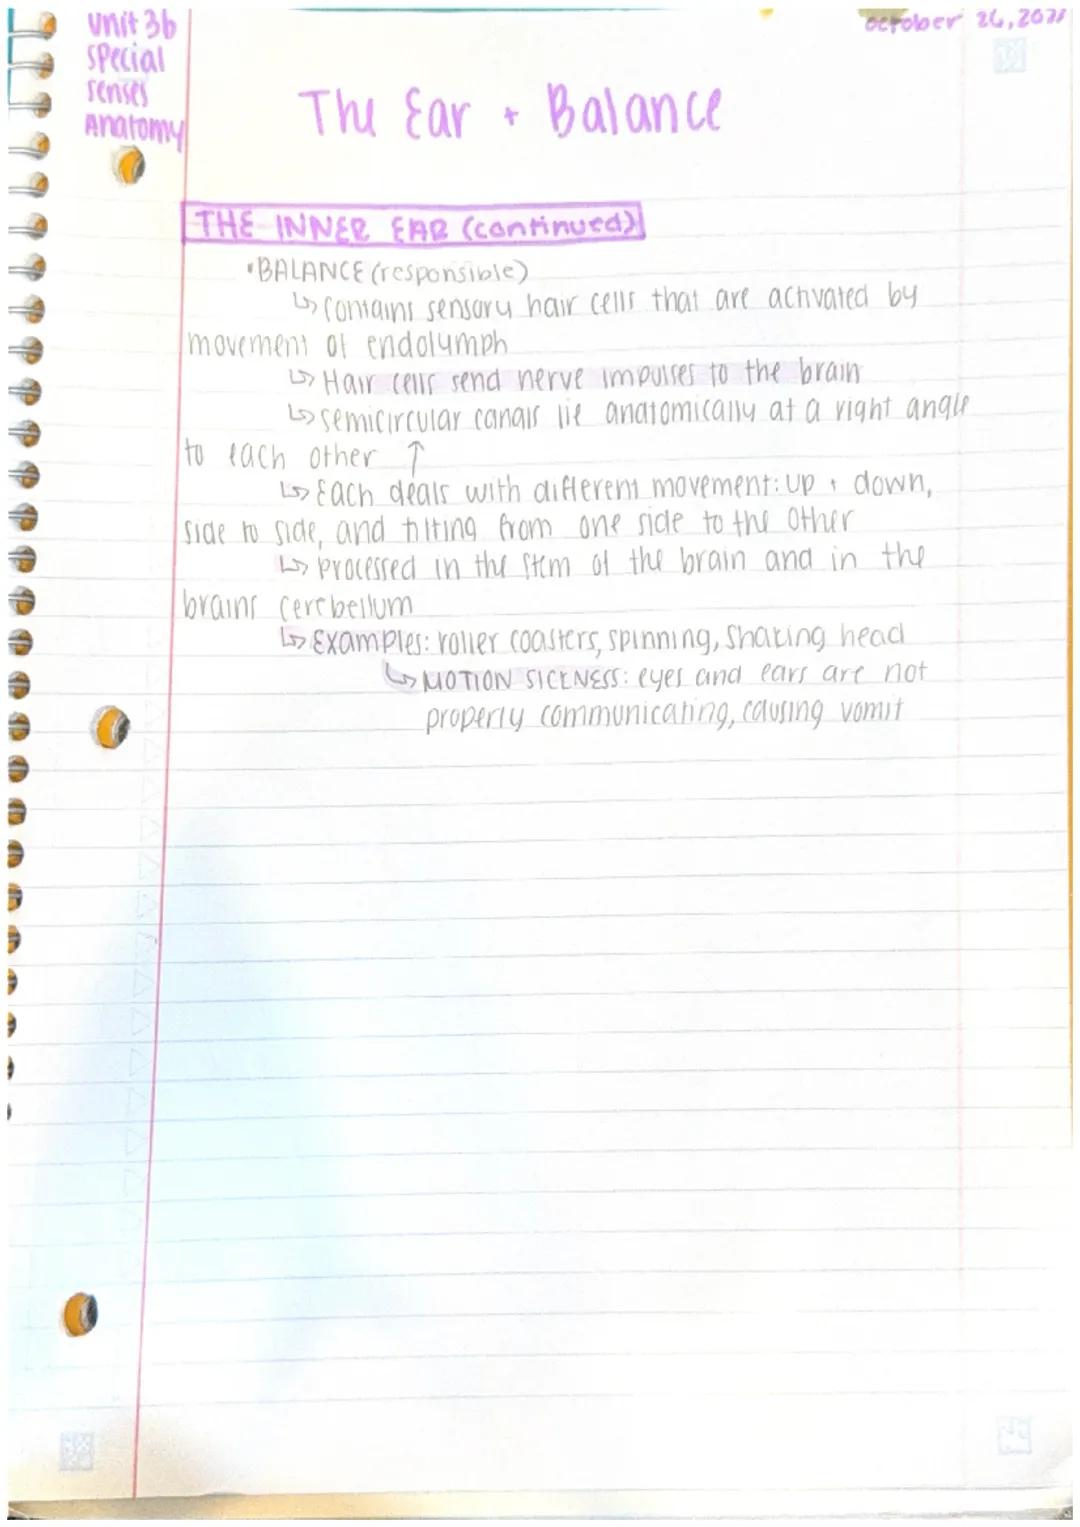 unit 3b
special
senses
Anatomy
october 26, 2021
The Ear + Balance
THE INNER EAR (continued)
•BALANCE (responsible)
↳ contains sensory hair cells that are activated by
movement of endolymph
↳ Hair cells send nerve impulses to the brain
↳ semicircular canals lie anatomically at a right angle
to each other ↑
↳ Each deals with different movement: up + down,
side to side, and tilting from one side to the other
↳ processed in the stem of the brain and in the
brains cerebellum
↳ Examples: roller coasters, spinning, shaking head
↳ MOTION SICKNESS: eyes and ears are not
properly communicating, causing vomit